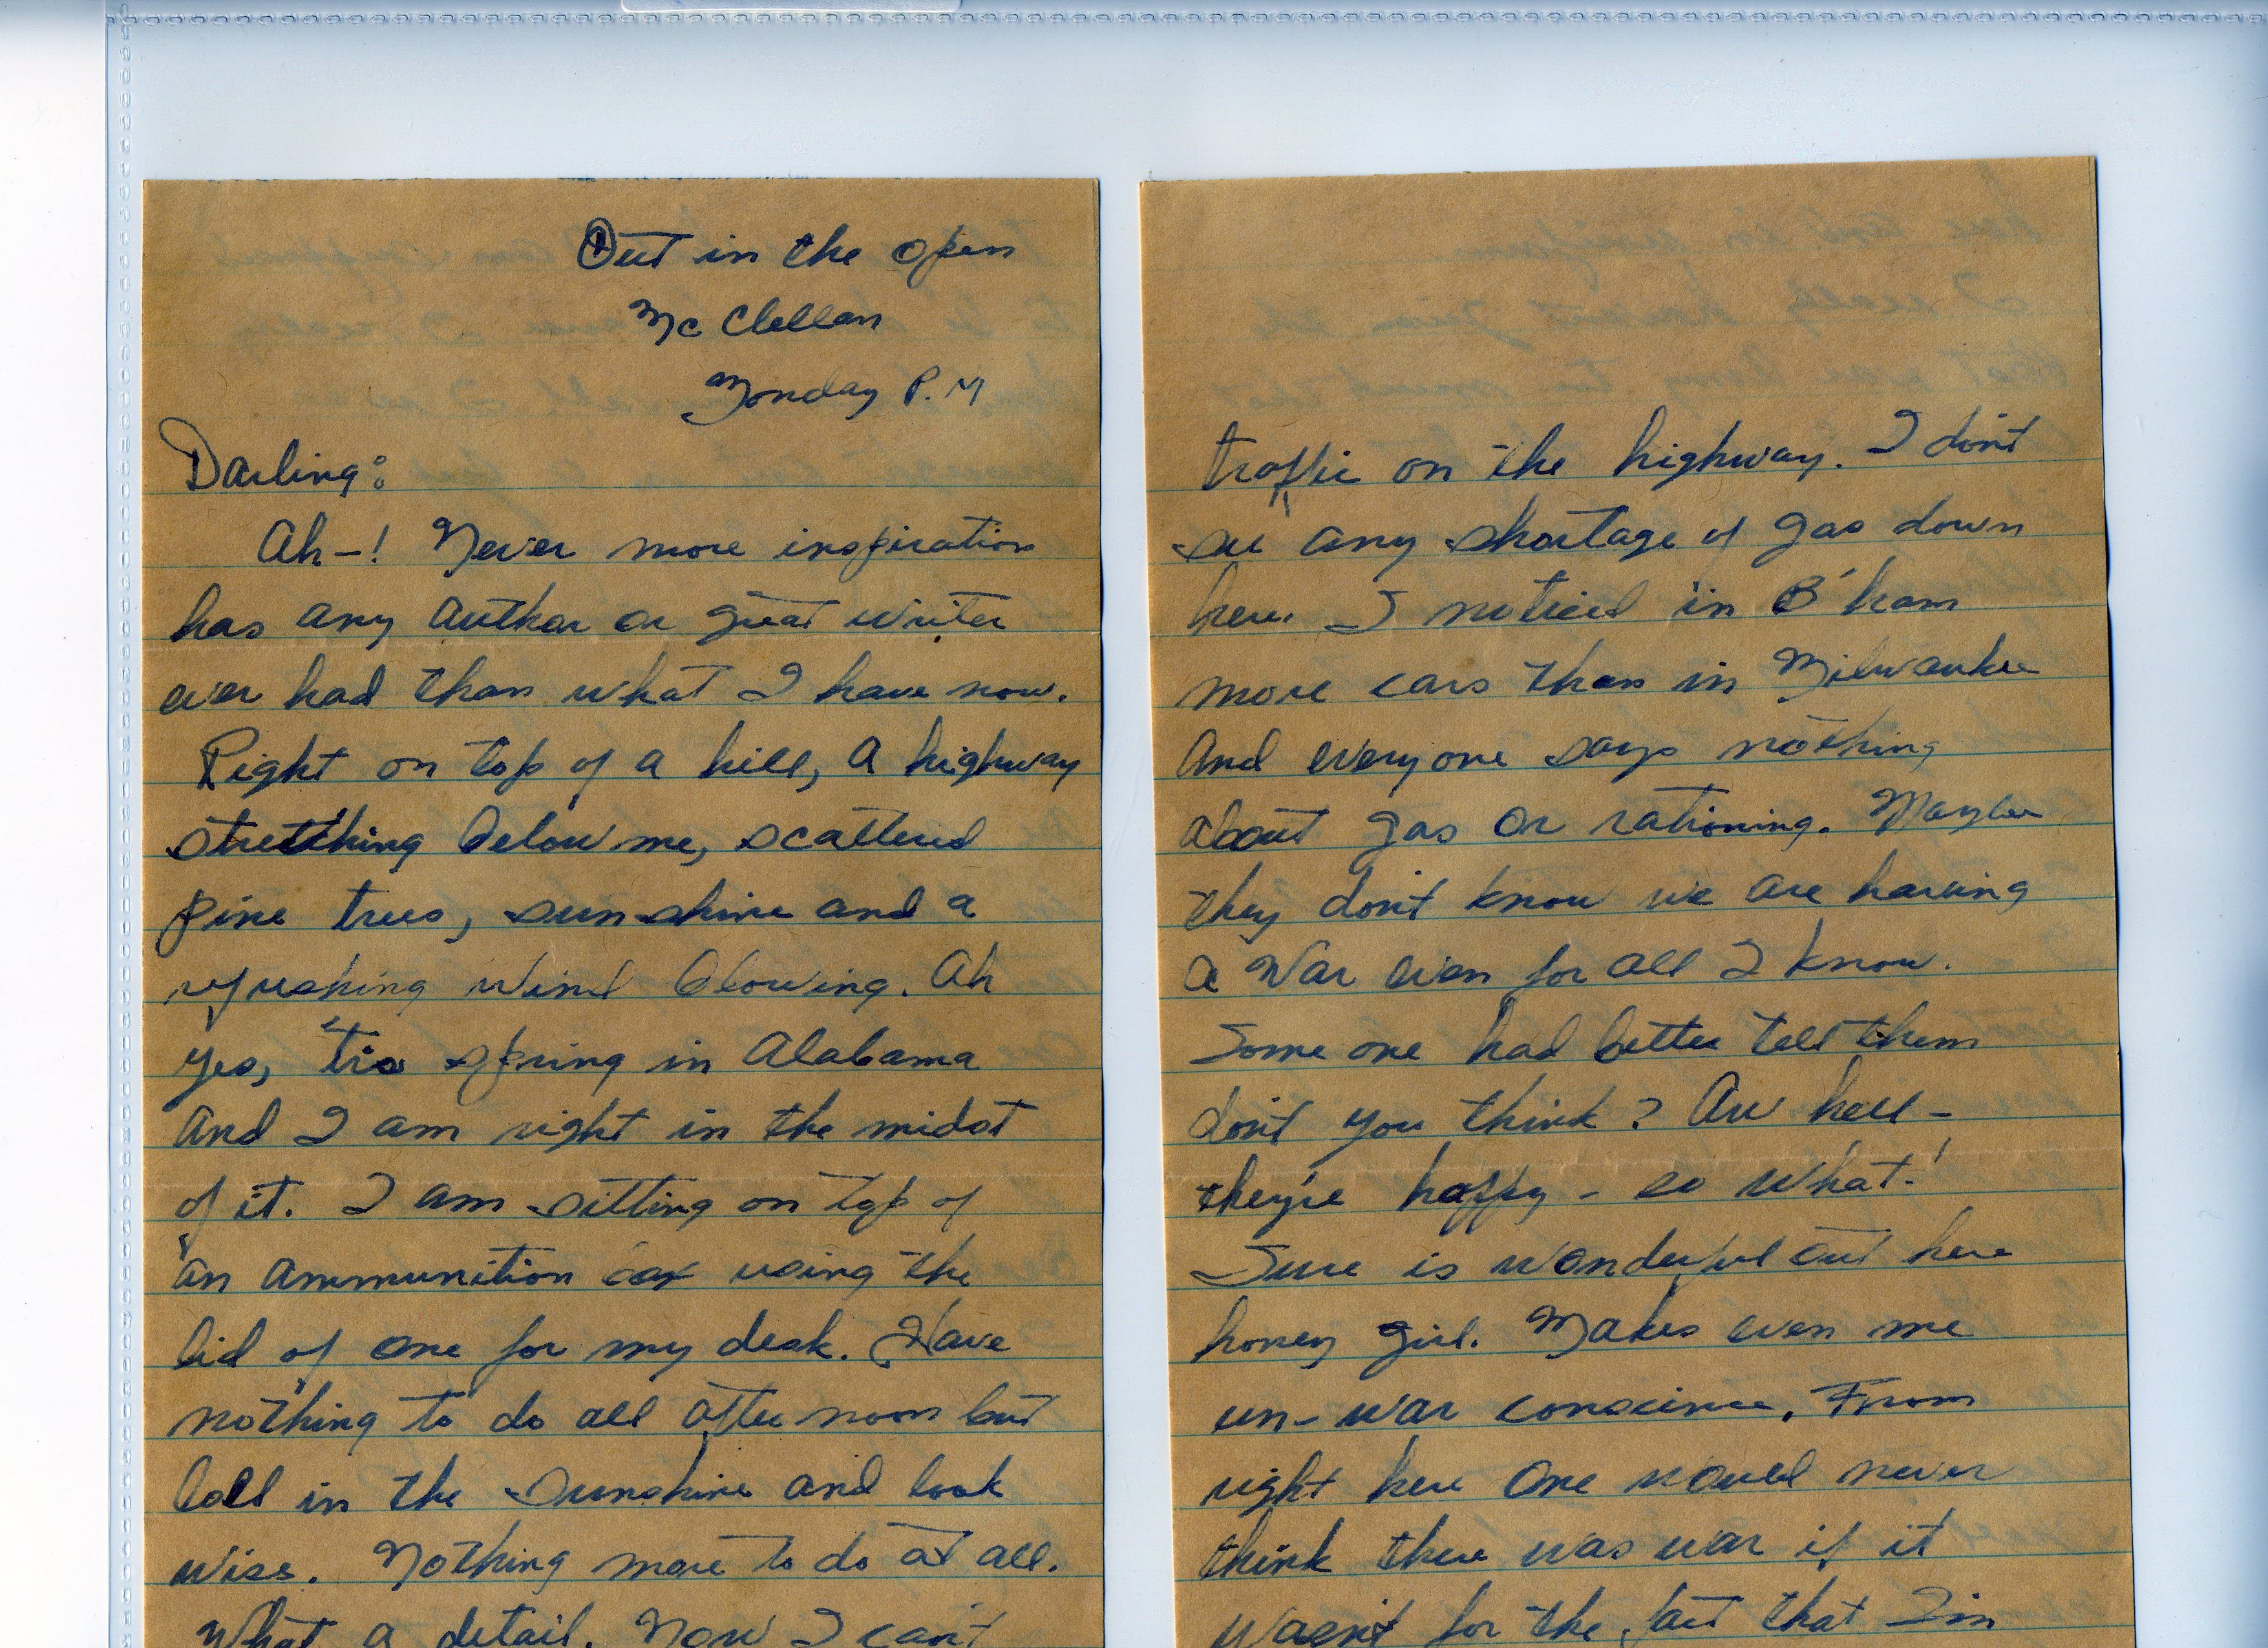 Out in the open
McClellan
Monday P.M
Darling:
Ah-! Never more inspiration
has any author or great writer
ever had than what I have now.
Right on top of a hill, a highway
stretching below me, scattered
pine trees, sunshine and a
refreshing wind blowing. Ah
yes, 'tis spring in Alabama
And I am right in the midst
of it. I am sitting on top of
an ammunition box using the
lid of one for my desk. Have
nothing to do all afternoon but
loll in the sunshine and look
wise. Nothing more to do at all.
What a detail. Now I can't
traffic on the highway. I don't
see any shortage of gas down
here. I noticed in B'ham
more cars than in Milwaukee
And everyone says nothing
about gas or rationing. Maybe
they don't know we are having
a war even for all I know.
Some one had better tell them
don't you think? Aw hell -
they're happy - so what!
Sure is wonderful out here
honey girl. Makes even me
un-war conscience. From
right here one would never
think there was war if it
wasn't for the fact that I'm